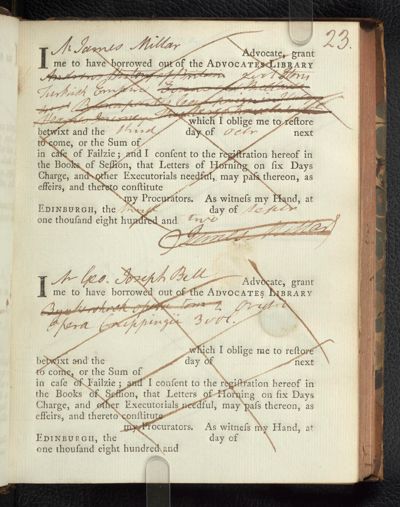 23.
I Mr James Millar Advocate, grant
me to have borrowed out of the ADVOCATES LIBRARY
Turkish Empire
which I oblige me to reſtore
betwixt and the third day of Octr next
to come, or the Sum of
in caſe of Failzie; and I conſent to the regiſtration hereof in
the Books of Seſſion, that Letters of Horning on ſix Days
Charge, and other Executorials needful, may paſs thereon, as
effeirs, and thereto conſtitute
my Procurators. As witneſs my Hand, at
EDINBURGH, the third day of
one thouſand eight hundred and two
James Millar
I Mr Geo. Joseph Bell Advocate, grant
me to have borrowed out of the ADVOCATES LIBRARY
opera Cnippingii 3 vol.
which I oblige me to reſtore
betwixt and the day of next
to come, or the Sum of
in caſe of Failzie; and I conſent to the regiſtration hereof in
the Books of Seſſion, that Letters of Horning on ſix Days
Charge, and other Executorials needful, may paſs thereon, as
effeirs, and thereto conſtitute
my Procurators. As witneſs my Hand, at
EDINBURGH, the day of
one thouſand eight hundred and